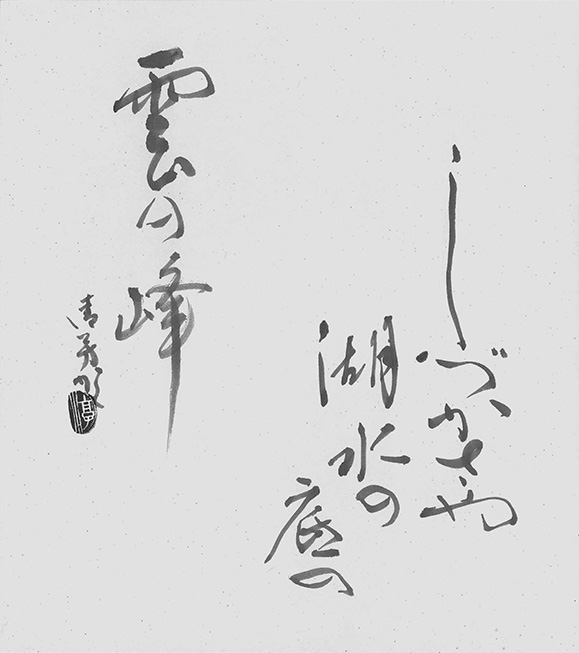 しづかさや
湖水の
底の
雲の峰